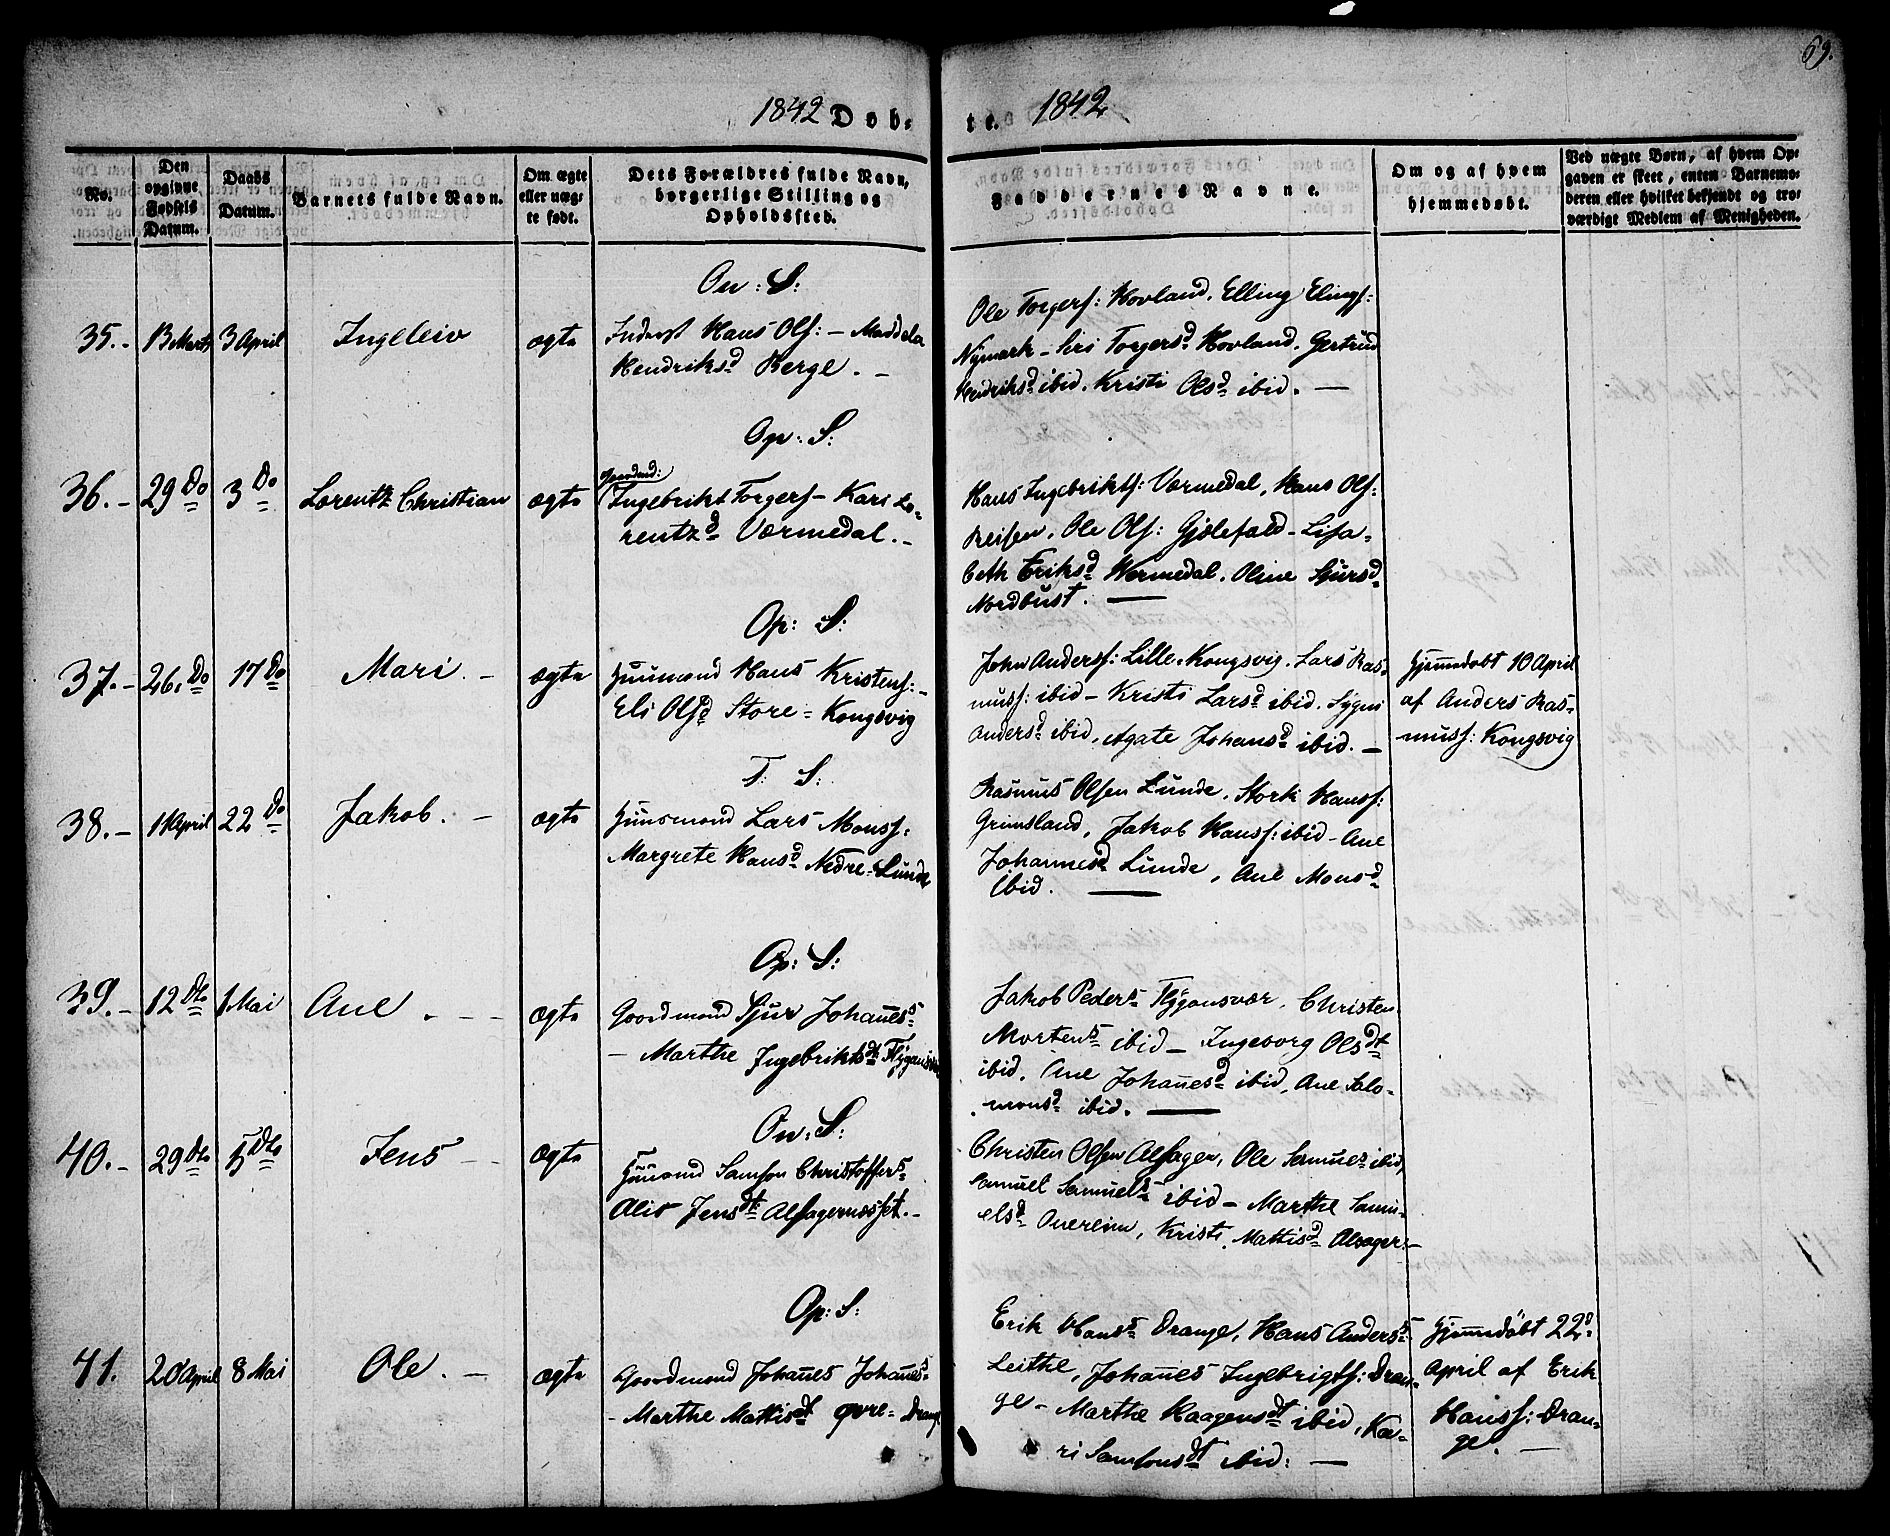 69.
1842 Døb-
te. 1842
No.
Den
opgivne
Fødsels
Datum.
Daabs
Datum.
Barnets fulde Navn.
Om ægte
eller uæg-
te født.
Dets Forældres fulde Navn,
borgerlige Stilling og
Opholdssted.
Faddernes Navne.
Om og af hvem
hjemmedøbt.
Ved uægte Børn, af hvem Op-
gaven er skeet, enten Barnemo-
deren eller hvilket bekjendt og tro-
værdigt Medlem af Menigheden.
On: S:
35.- 13 Marts 3 April Ingeleiv ægte
Inderst Hans Ols: - Maddela
Hendriksd Berge. -
Ole Torgers: Hovland, Elling Elings:
Nymark - Siri Torgersd Hovland. Gertrud
Hendriksd ibid. Kristi Olsd ibid. -
Op: S:
36.- 29 Do 3 Do Lorentz Christian ægte
Ingebrikt Torgers - Kari Lo-
rentzd Værmedal. -
Hans Ingebrikts: Værmedal, Hans Ols:
Reisen, Ole Ols: Gjølefald - Lisa-
beth Eriksd Wermedal, Oline Sjursd
Nordbust. -
Op: S:
37.- 26. Do 17 Do Mari. - ægte
Huusmand Hans Kristens: -
Eli Olsd Store-Kongsvig
John Anders: Lille-Kongsvig. Lars Ras-
muss: ibid - Kristi Larsd ibid. Sygni
Andersd ibid, Agate Johansd ibid. -
Hjemmedøbt 10 April
af Anders Ras-
muss: Kongsvig
T: S:
38.- 1 April 22 Do Jakob. - ægte
Huusmand Lars Monss:
Margrete Hansd Nedre-Lunde
Rasmus Olsen Lunde, Stork Hanss:
Grimsland, Jakob Hanss: ibid - Ane
Johannesd Lunde, Ane Monsd
ibid. -
Op: S:
39.- 12 Dto 1 Mai Ane. - - ægte
Gaardmand Sjur Johanes
- Marthe Ingebriktsdt Flygansvær
Jakob Peders Flygansvær, Christen
Mortens ibid - Ingeborg Olsdt
ibid. Ane Johanesd ibid, Ane Salo-
monsd ibid. -
On: S:
40.- 29 Dto 5 Dto Jens - ægte
Huusmand Samson Christoffers
Alis Jensdt Alsagernesset. -
Christen Olsen Alsager, Ole Samuels ibid,
Samuel Samuels ibid - Marthe Samu-
elsd Qvereim, Kristi Mattisd Alsager: -
Op: S:
41. 20 April 8 Mai Ole. - ægte
Gaardmand Johanes Johanes
- Marthe Mattisdt Øvre-Drange
Erik Hans Drange, Hans Anders
Leithe, Johanes Ingebrigts: Dran-
ge - Marthe Haagensdt ibid, Ka-
ri Samsonsdt ibid: -
Hjemmedøbt 22d
April af Erik
Hanss: Dran-
ge. -